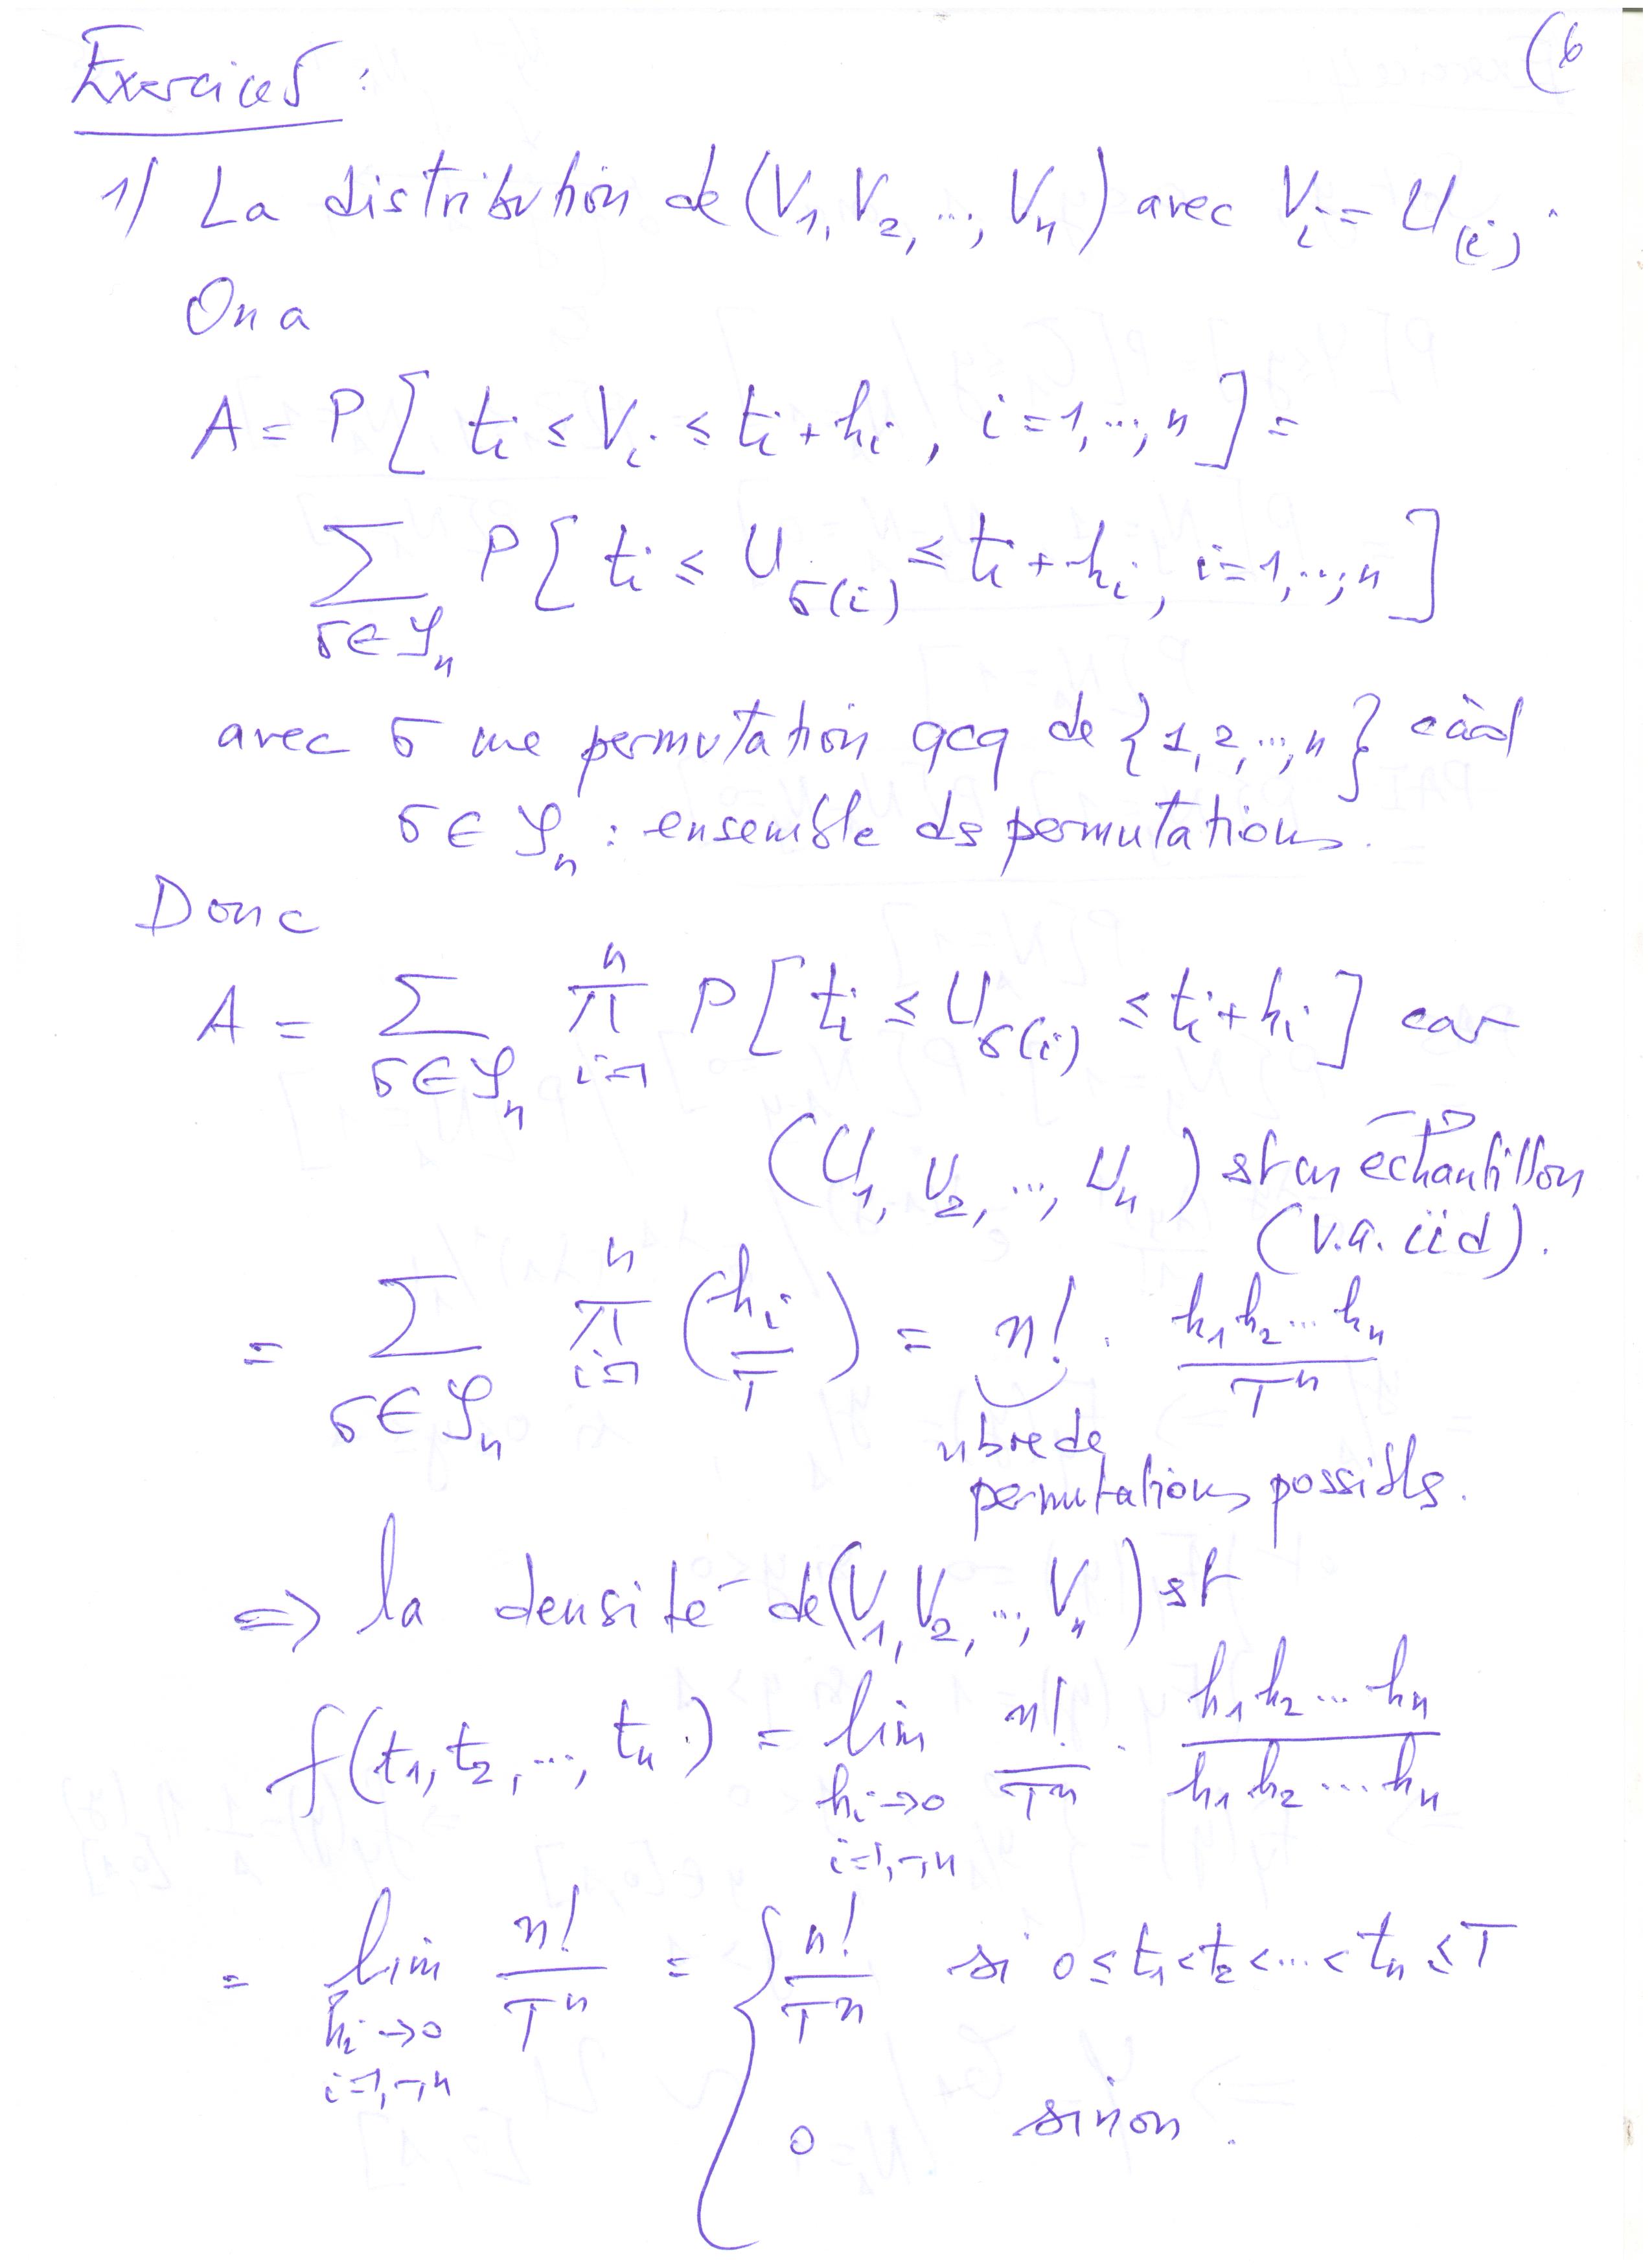 (6
Exercice 5 :
1/ La distribution de (V₁, V₂, ..., Vₙ) avec Vᵢ = U₍ᵢ₎.
On a
A = P[ tᵢ ≤ Vᵢ ≤ tᵢ + hᵢ , i = 1, ..., n ] =
∑_{σ∈𝒮ₙ} P[ tᵢ ≤ U_{σ(i)} ≤ tᵢ + hᵢ, i = 1, ..., n ]
avec σ une permutation qcq de {1, 2, ..., n} càd
σ ∈ 𝒮ₙ : ensemble ds permutations.
Donc
A = ∑_{σ∈𝒮ₙ} ∏_{i=1}^{n} P[ tᵢ ≤ U_{σ(i)} ≤ tᵢ + hᵢ ] car
(U₁, U₂, ..., Uₙ) st un échantillon
(v.a. iid).
= ∑_{σ∈𝒮ₙ} ∏_{i=1}^{n} (hᵢ/T) = n! . h₁h₂...hₙ / Tⁿ
nbre de
permutations possibls.
=> la densité de (V₁, V₂, ..., Vₙ) st
f(t₁, t₂, ..., tₙ) = lim_{hᵢ→0, i=1,..,n} n!/Tⁿ . h₁h₂...hₙ / h₁h₂...hₙ
= lim_{hᵢ→0, i=1,..,n} n!/Tⁿ = { n!/Tⁿ si 0 ≤ t₁ < t₂ < ... < tₙ ≤ T
0 sinon.